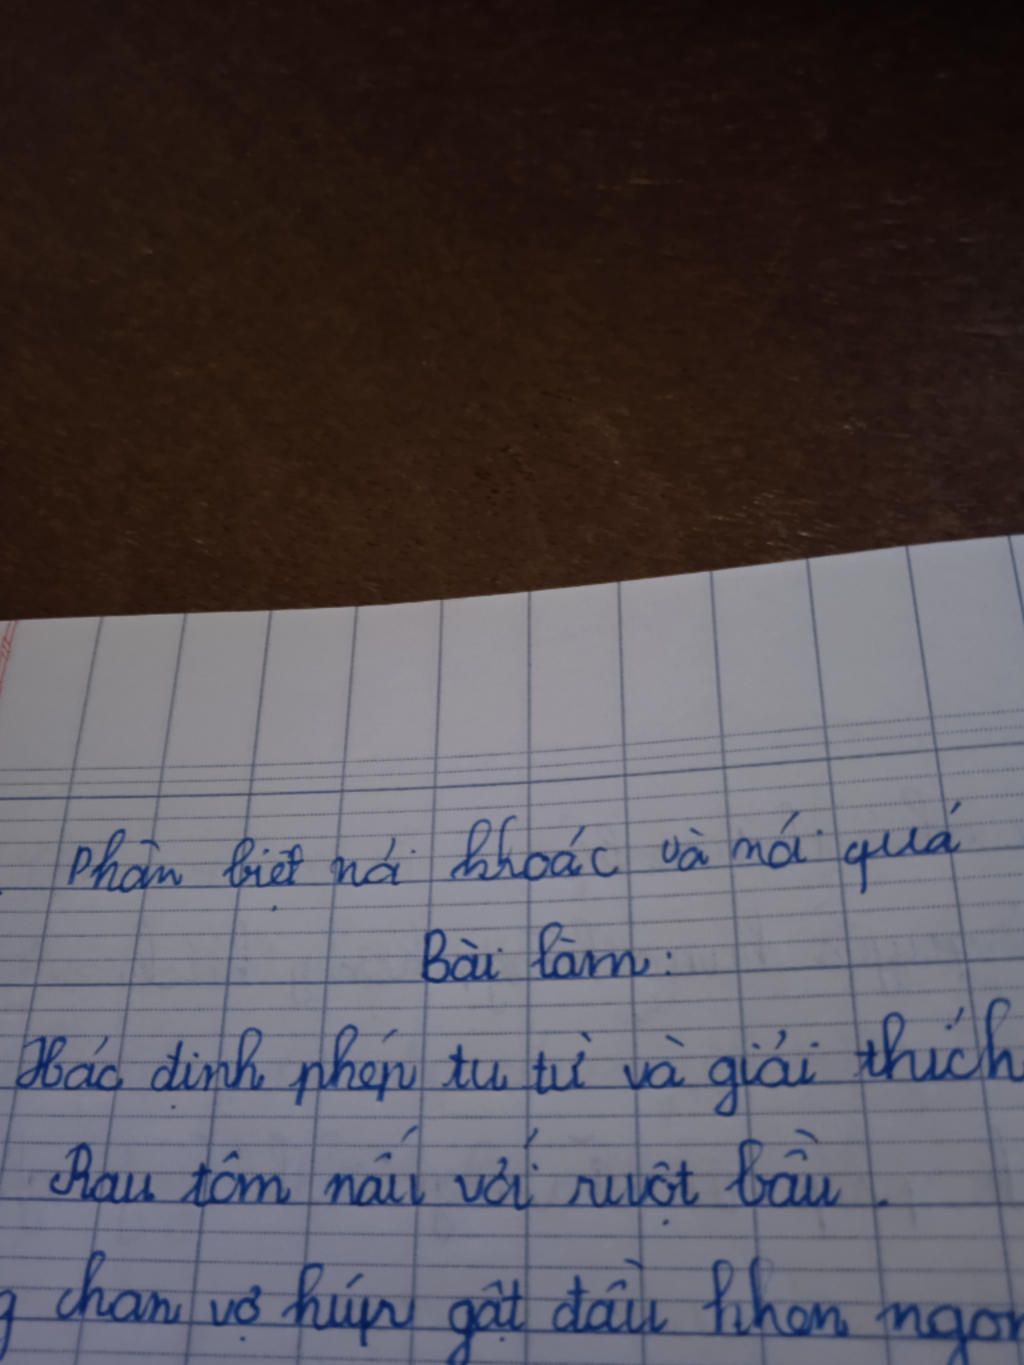 Phân biệt nói khoác và nói quá
Bài làm:
Xác định phép tu từ và giải thích
Rau tôm nấu với ruột bầu.
chan vợ húp gật đầu khen ngon